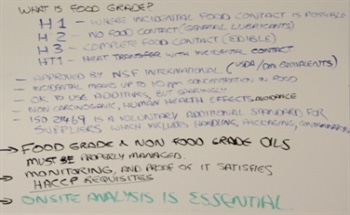 WHAT IS FOOD GRADE?
H1 - WHERE INCIDENTAL FOOD CONTACT IS POSSIBLE
H2 - NO FOOD CONTACT (GENERAL LUBRICANTS)
H3 - COMPLETE FOOD CONTACT (EDIBLE)
HT1 - HEAT TRANSFER WITH INCIDENTAL CONTACT
- APPROVED BY NSF INTERNATIONAL (USDA/ EQUIVALENTS)
- INCIDENTAL MEANS UP TO 10 ppm CONCENTRATION IN FOOD
- OK TO USE ADDITIVES, BUT SPARINGLY
- NON CARCINOGENIC, HUMAN HEALTH EFFECTS AVOIDANCE
- ISO 21469 IS A VOLUNTARY ADDITIONAL STANDARD FOR
SUPPLIERS WHICH INCLUDES HANDLING, PACKAGING,
→ FOOD GRADE & NON FOOD GRADE OILS
MUST BE PROPERLY MANAGED.
→ MONITORING, AND PROOF OF IT SATISFIES
HACCP REQUISITES
→ ONSITE ANALYSIS IS ESSENTIAL